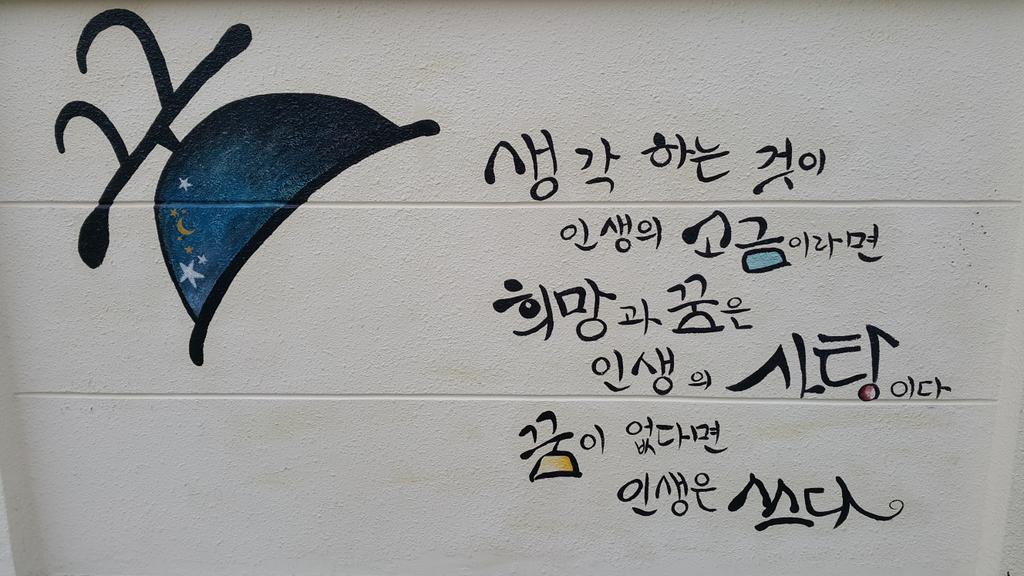 꿈
생각 하는 것이
인생의 소금이라면
희망과 꿈은
인생의 사탕이다
꿈이 없다면
인생은 쓰다